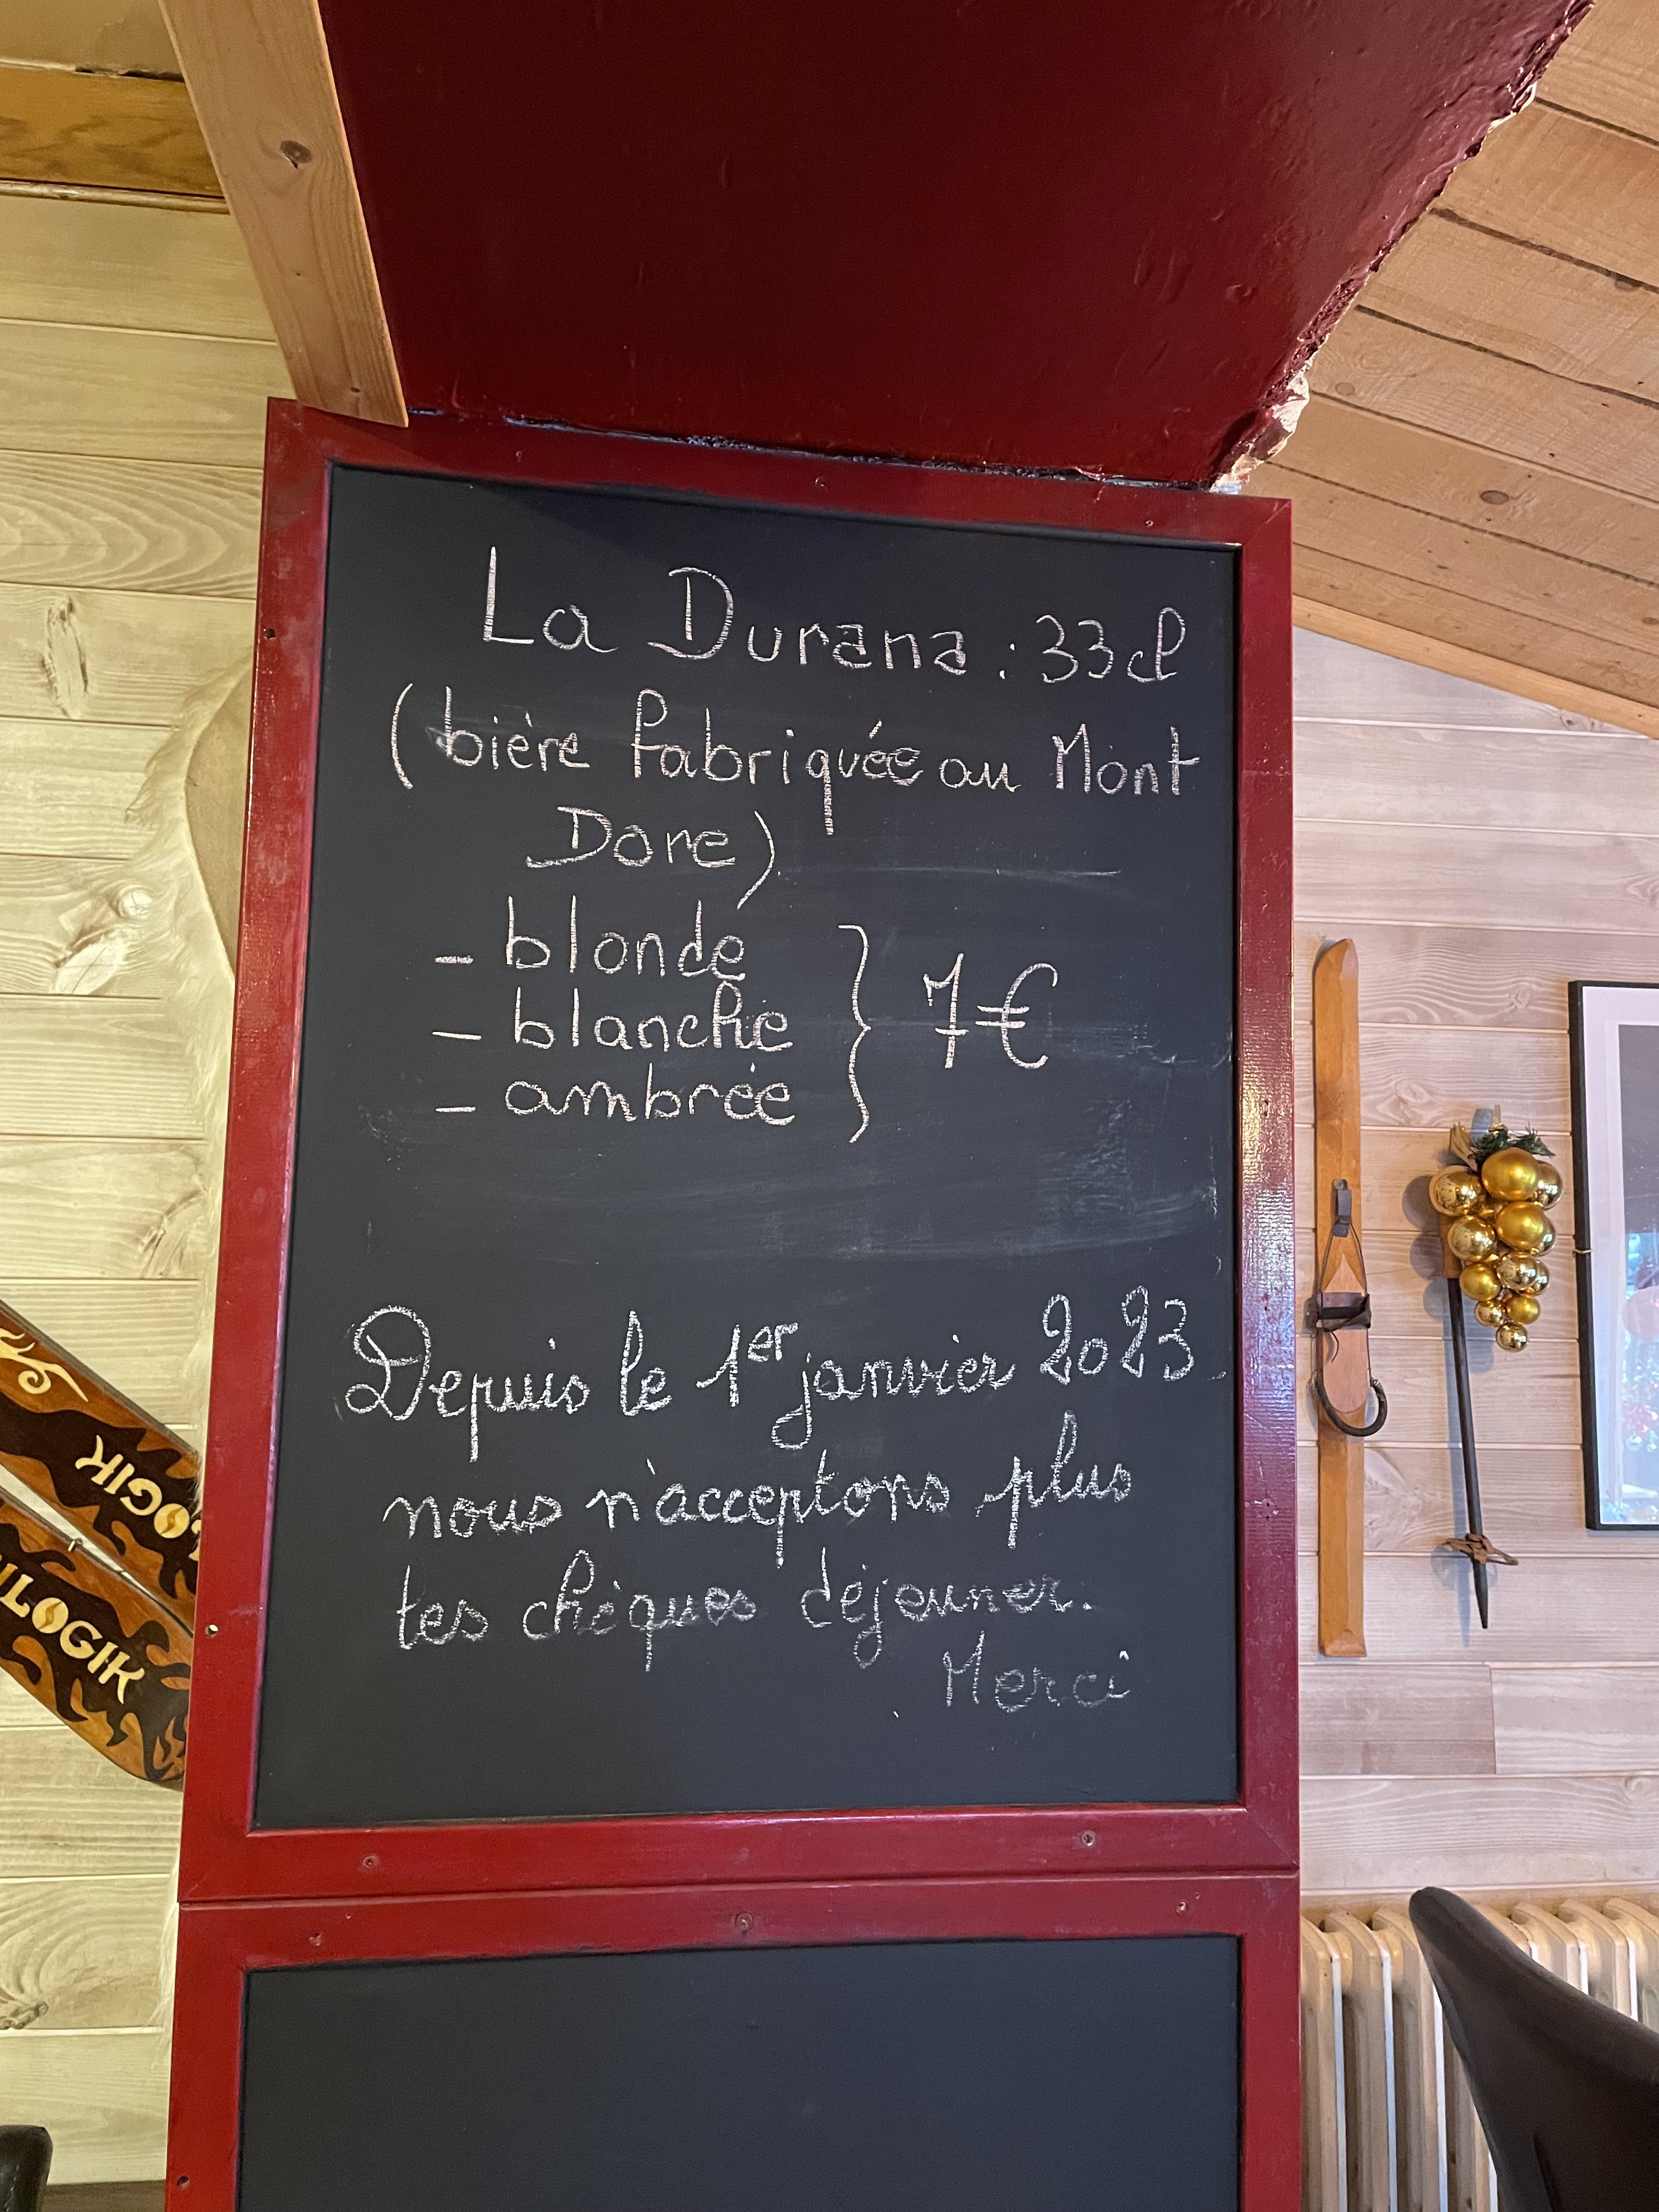 La Durana : 33cl
(bière fabriquée au Mont
Dore)
- blonde
- blanche
- ambrée
} 7€
Depuis le 1er janvier 2023
nous n'acceptons plus
les chèques déjeuner.
Merci
LOGIK
ILOGIK